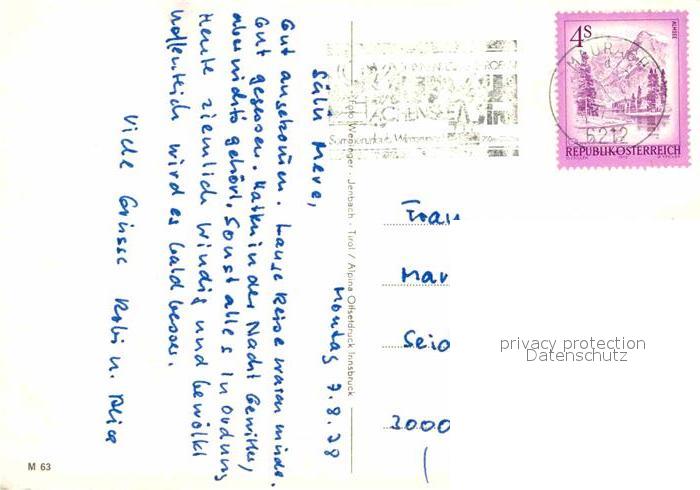 Montag 7.8.78
Sälü Mere,
Gut angekommen. Lange Reise waren müde.
Gut gegessen. Hatten in der Nacht Gewitter,
aber nichts gehört. Sonst alles in Ordnung
Heute ziemlich windig und bewölkt
hoffentlich wird es bald besser.
Viele Grüsse Robi u. Alice
Foto Weninger - Jenbach - Tirol / Alpina Offsetdruck Innsbruck
M 63
4S
ALMSEE
REPUBLIK ÖSTERREICH
MAURACH
6212
ACHENSEE
Frau
Mar
Seio
3000
privacy protection
Datenschutz